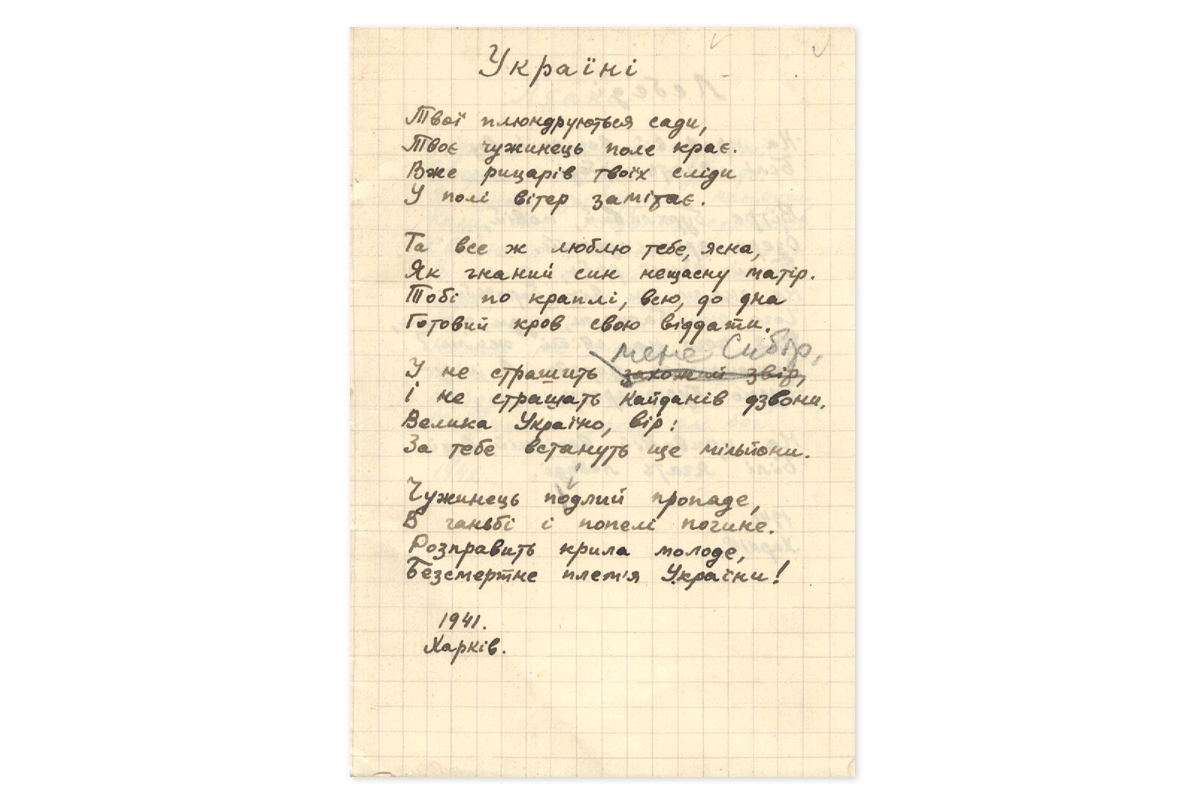 Україні
Твої плюндруються сади,
Твоє чужинець поле крає.
Вже рицарів твоїх сліди
У полі вітер замітає.
Та все ж люблю тебе, ясна,
Як гнаний син нещасну матір.
Тобі по краплі, всю, до дна
Готовий кров свою віддати.
мене Сибір,
У не страшить захожий звір,
І не стращать кайданів дзвони.
Велика Україно, вір:
За тебе встануть ще мільйони.
Чужинець подлий пропаде,
В ганьбі і попелі погине.
Розправить крила молоде,
Безсмертне плем'я України!
1941.
Харків.